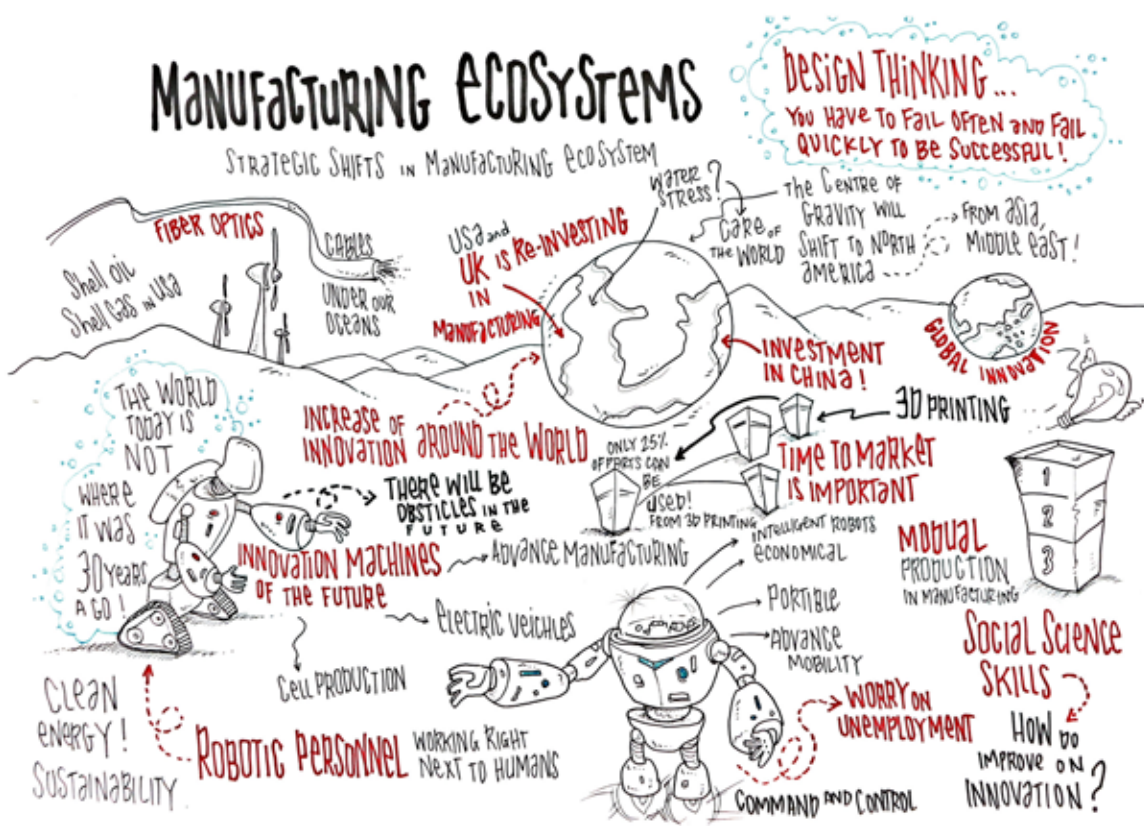 MANUFACTURING ECOSYSTEMS
STRATEGIC SHIFTS IN MANUFACTURING ECOSYSTEM
DESIGN THINKING...
YOU HAVE TO FAIL OFTEN AND FAIL
QUICKLY TO BE SUCCESSFUL!
FIBER OPTICS
CABLES
UNDER OUR
OCEANS
Shell Oil
Shell Gas IN USA
USA and
UK is RE-INVESTING
IN
MANUFACTURING
WATER
STRESS?
CARE OF
THE WORLD
THE CENTRE OF
GRAVITY WILL
SHIFT TO NORTH
AMERICA
FROM ASIA,
MIDDLE EAST!
GLOBAL INNOVATION
INVESTMENT
IN CHINA!
THE WORLD
TODAY IS
NOT
WHERE
IT WAS
30 YEARS
AGO!
INCREASE OF
INNOVATION AROUND THE WORLD
3D PRINTING
ONLY 25%
OF PARTS CAN
BE
USED!
FROM 3D PRINTING
TIME TO MARKET
IS IMPORTANT
THERE WILL BE
OBSTICLES IN THE
FUTURE
INNOVATION MACHINES
OF THE FUTURE
ADVANCE MANUFACTURING
ELECTRIC VEICHLES
CELL PRODUCTION
INTELLIGENT ROBOTS
ECONOMICAL
PORTIBLE
ADVANCE
MOBILITY
1
2
3
MODUAL
PRODUCTION
IN MANUFACTURING
SOCIAL SCIENCE
SKILLS
HOW DO
IMPROVE ON
INNOVATION?
WORRY ON
UNEMPLOYMENT
COMMAND AND CONTROL
CLEAN
ENERGY!
SUSTAINABILITY
ROBOTIC PERSONNEL
WORKING RIGHT
NEXT TO HUMANS